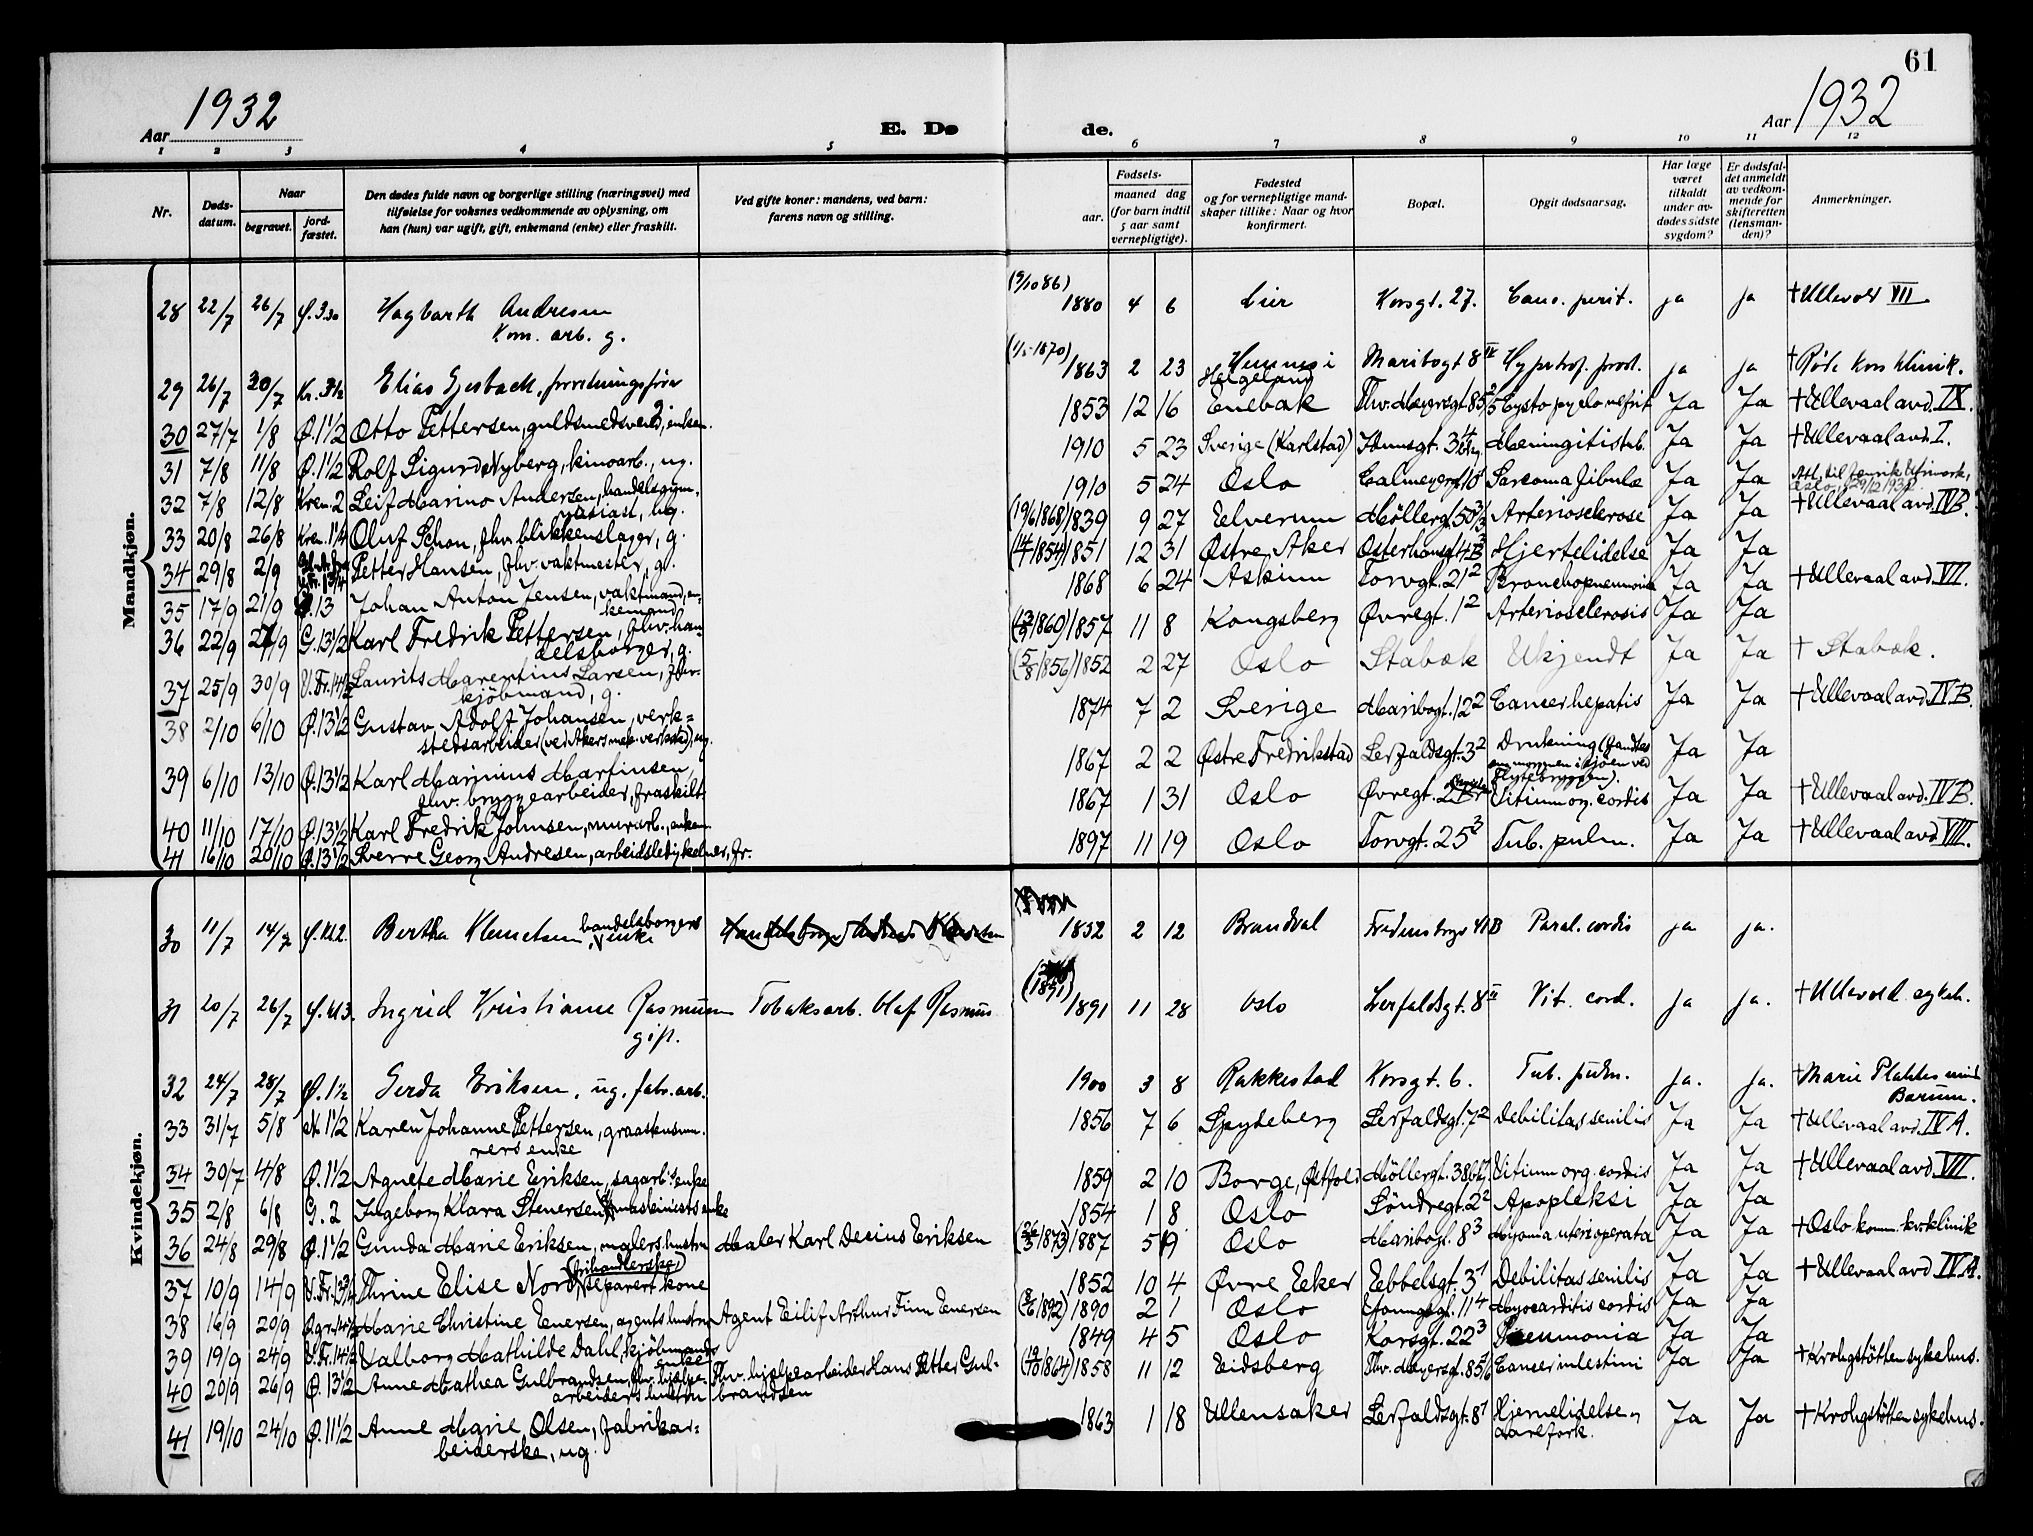 61
Aar 1932
E. Dø
de.
Aar 1932
1 2 3 4 5 6 7 8 9 10 11 12
Nr.
Døds-
datum.
Naar
begravet.
jord-
fæstet.
Den dødes fulde navn og borgerlige stilling (næringsvei) med
tilføielse for voksnes vedkommende av oplysning, om
han (hun) var ugift, gift, enkemand (enke) eller fraskilt.
Ved gifte koner: mandens, ved barn:
farens navn og stilling.
Fødsels-
aar.
maaned dag
(for barn indtil
5 aar samt
vernepligtige).
Fødested
og for vernepligtige mand-
skaper tillike: Naar og hvor
konfirmert.
Bopæl.
Opgit dødsaarsag.
Har læge
været
tilkaldt
under av-
dødes sidste
sygdom?
Er dødsfal-
det anmeldt
av vedkom-
mende for
skifteretten
(lensman-
den)?
Anmerkninger.
Mandkjøn.
(9/10 86)
28 22/7 26/7 Ø. 3.30 Hagbarth Andresen 1880 4 6 Lier Korsgt. 27. Canc. perit. ja ja † Ullevold VII
Kom. arb. g.
29 26/7 30/7 Kr. 3 1/2 Elias 1863 2 23 Hemnes i Maribogt 8 IV Hypertrof. prost. ja ja † Røde Kors Klinik.
Helgeland
30 27/7 1/8 Ø. 1 1/2 Otto Pettersen, guldsmedsvend, enkem. 1853 12 16 Enebak Thv. Meyersgt. 85 Cysto pyelonefrit Ja Ja † Ullevaal avd. IX.
31 7/8 11/8 Ø. 1 1/2 Rolf Sigurd Nyberg, kinoarb., ug. 1910 5 23 Sverige (Karlstad) Meningitis tub. Ja Ja † Ullevaal avd. I.
32 7/8 12/8 Krem. 2 Leif Marino Andersen, handelsgym- 1910 5 24 Oslo Calmeyersgt. 10 Sarcoma fibulæ Ja Ja
nasiast, ug.
33 20/8 26/8 Krem. 1 1/4 Oluf Schou, fhv. blikkenslager, g. (19/6 1868) 1839 9 27 Elverum Møllergt. 50 Arteriosclerose Ja Ja † Ullevaal avd. IVB.
34 29/8 2/9 Petter Hansen, fhv. vaktmester, g. 1851 12 31 Østre Aker Osterhausgt. Hjertelidelse Ja Ja
35 17/9 21/9 Ø. 13 Johan Anton Jensen, vaktmand, en- 1868 6 24 Askim Torvgt. 21 2 Bronchopneumonia Ja Ja † Ullevaal avd. VII.
kemand
36 22/9 27/9 G. 13 1/2 Karl Fredrik Pettersen, fhv. han- 1857 11 8 Kongsberg Øvregt. 1 2 Arteriosclerosis Ja Ja
delsborger, g.
37 25/9 30/9 V. Fr. 14 1/2 Laurits Marentius Larsen, fhv. (5/8 1856) 1852 2 27 Oslo Stabæk Ukjendt Ja Ja † Stabæk.
kjøbmand, g.
38 2/10 6/10 Ø. 13 1/2 Gustav Adolf Johansen, verk- 1874 7 2 Sverige Maribogt. 12 2 Cancer hepatis Ja Ja † Ullevaal avd. IVB.
stedsarbeider (ved Akers mek. verksted), ug.
39 6/10 13/10 Ø. 13 1/2 Karl Marinius Martinsen, 1867 2 2 Østre Fredrikstad Lerfaldsgt. 3 2 Drukning (fandtes Ja Ja
om morgenen i sjøen ved
fhv. bryggearbeider, fraskilt. Flytebryggen).
40 11/10 17/10 Ø. 13 1/2 Karl Fredrik Johnsen, murarb., enkem. 1867 1 31 Oslo Øvregt. Vitium org. cordis Ja Ja † Ullevaal avd. IVB.
41 16/10 20/10 Ø. 13 1/2 Sverre Georg Andresen, arbeidsledig kelner, fr. 1897 11 19 Oslo Torvgt. 25 3 Tub. pulm. Ja Ja † Ullevaal avd. VIII.
Kvindekjøn.
30 11/7 14/7 Ø. kl 2. Bertha Klemetsen, handelsborgers enke 1852 2 12 Brandval Fredensborgv. 41 B Paral. cordis ja ja.
31 20/7 26/7 Ø. kl 3. Ingrid Kristiane Rasmussen Tobaksarb. Olaf Rasmus 1891 11 28 Oslo Lerfaldsgt. 8 II Vit. cord. ja ja. † Ullevold sykeh.
gift.
32 24/7 28/7 Ø. 1 1/2 Gerda Eriksen, ug. fabr. arb. 1900 3 8 Rakkestad Korsgt. 6. Tub. pulm. ja. ja. † Marie Plahtes minde
Bærum.
33 31/7 5/8 N. 1 1/2 Karen Johanne Pettersen, 1856 7 6 Spydeberg Lerfaldsgt. 7 2 Debilitas senilis Ja Ja † Ullevaal avd. IV A.
rers enke
34 30/7 4/8 Ø. 1 1/2 Agnete Marie Eriksen, sagarb.s enke 1859 2 10 Borge, Østfold Møllergt. 38 Vitium org. cordis Ja Ja † Ullevaal avd. VII.
35 2/8 6/8 G. 2 Ingeborg Klara Stenersen, maskinists enke 1854 1 8 Oslo Søndregt. 2 2 Apopleksi Ja Ja
36 24/8 29/8 Ø. 1 1/2 Gunda Marie Eriksen, malers hustru Maler Karl Decius Eriksen 1887 5 9 Oslo Maribogt. 8 3 Myoma uteri operata Ja Ja † Oslo komm. kv. klinik
(frihandlerske)
37 10/9 14/9 V. Fr. 13 3/4 Thrine Elise Nord, separert kone 1852 10 4 Øvre Eeker Ebbelsgt. 3 1 Debilitas senilis Ja Ja † Ullevaal avd. IVA.
38 16/9 20/9 Marie Christine Enersen, agents hustru Agent Eilif Arthur Finn Enersen 1890 2 1 Oslo Youngsgt. 11 4 Myocarditis cordis Ja Ja
39 19/9 24/9 V. Fr. 14 1/2 Valborg Mathilde Dahl, kjøbmands 1849 4 5 Oslo Korsgt. 22 3 Pneumonia Ja Ja
enke
40 20/9 26/9 Ø. 13 1/2 Anne Mathea Gulbrandsen, fhv. hjelpe- Fhv. hjelpearbeider Hans Petter Gul- 1858 11 12 Eidsberg Thv. Meyersgt. 85 Cancer intestini Ja Ja † Krohgstøtten sykehus.
arbeiders hustru brandsen
41 19/10 24/10 Ø. 11 1/2 Anne Marie Olsen, fabrikar- 1863 1 18 Ullensaker Lerfaldsgt. 8 1 Hjernelidelse, Ja Ja † Krohgstøtten sykehus.
beiderske, ug. aarefork.